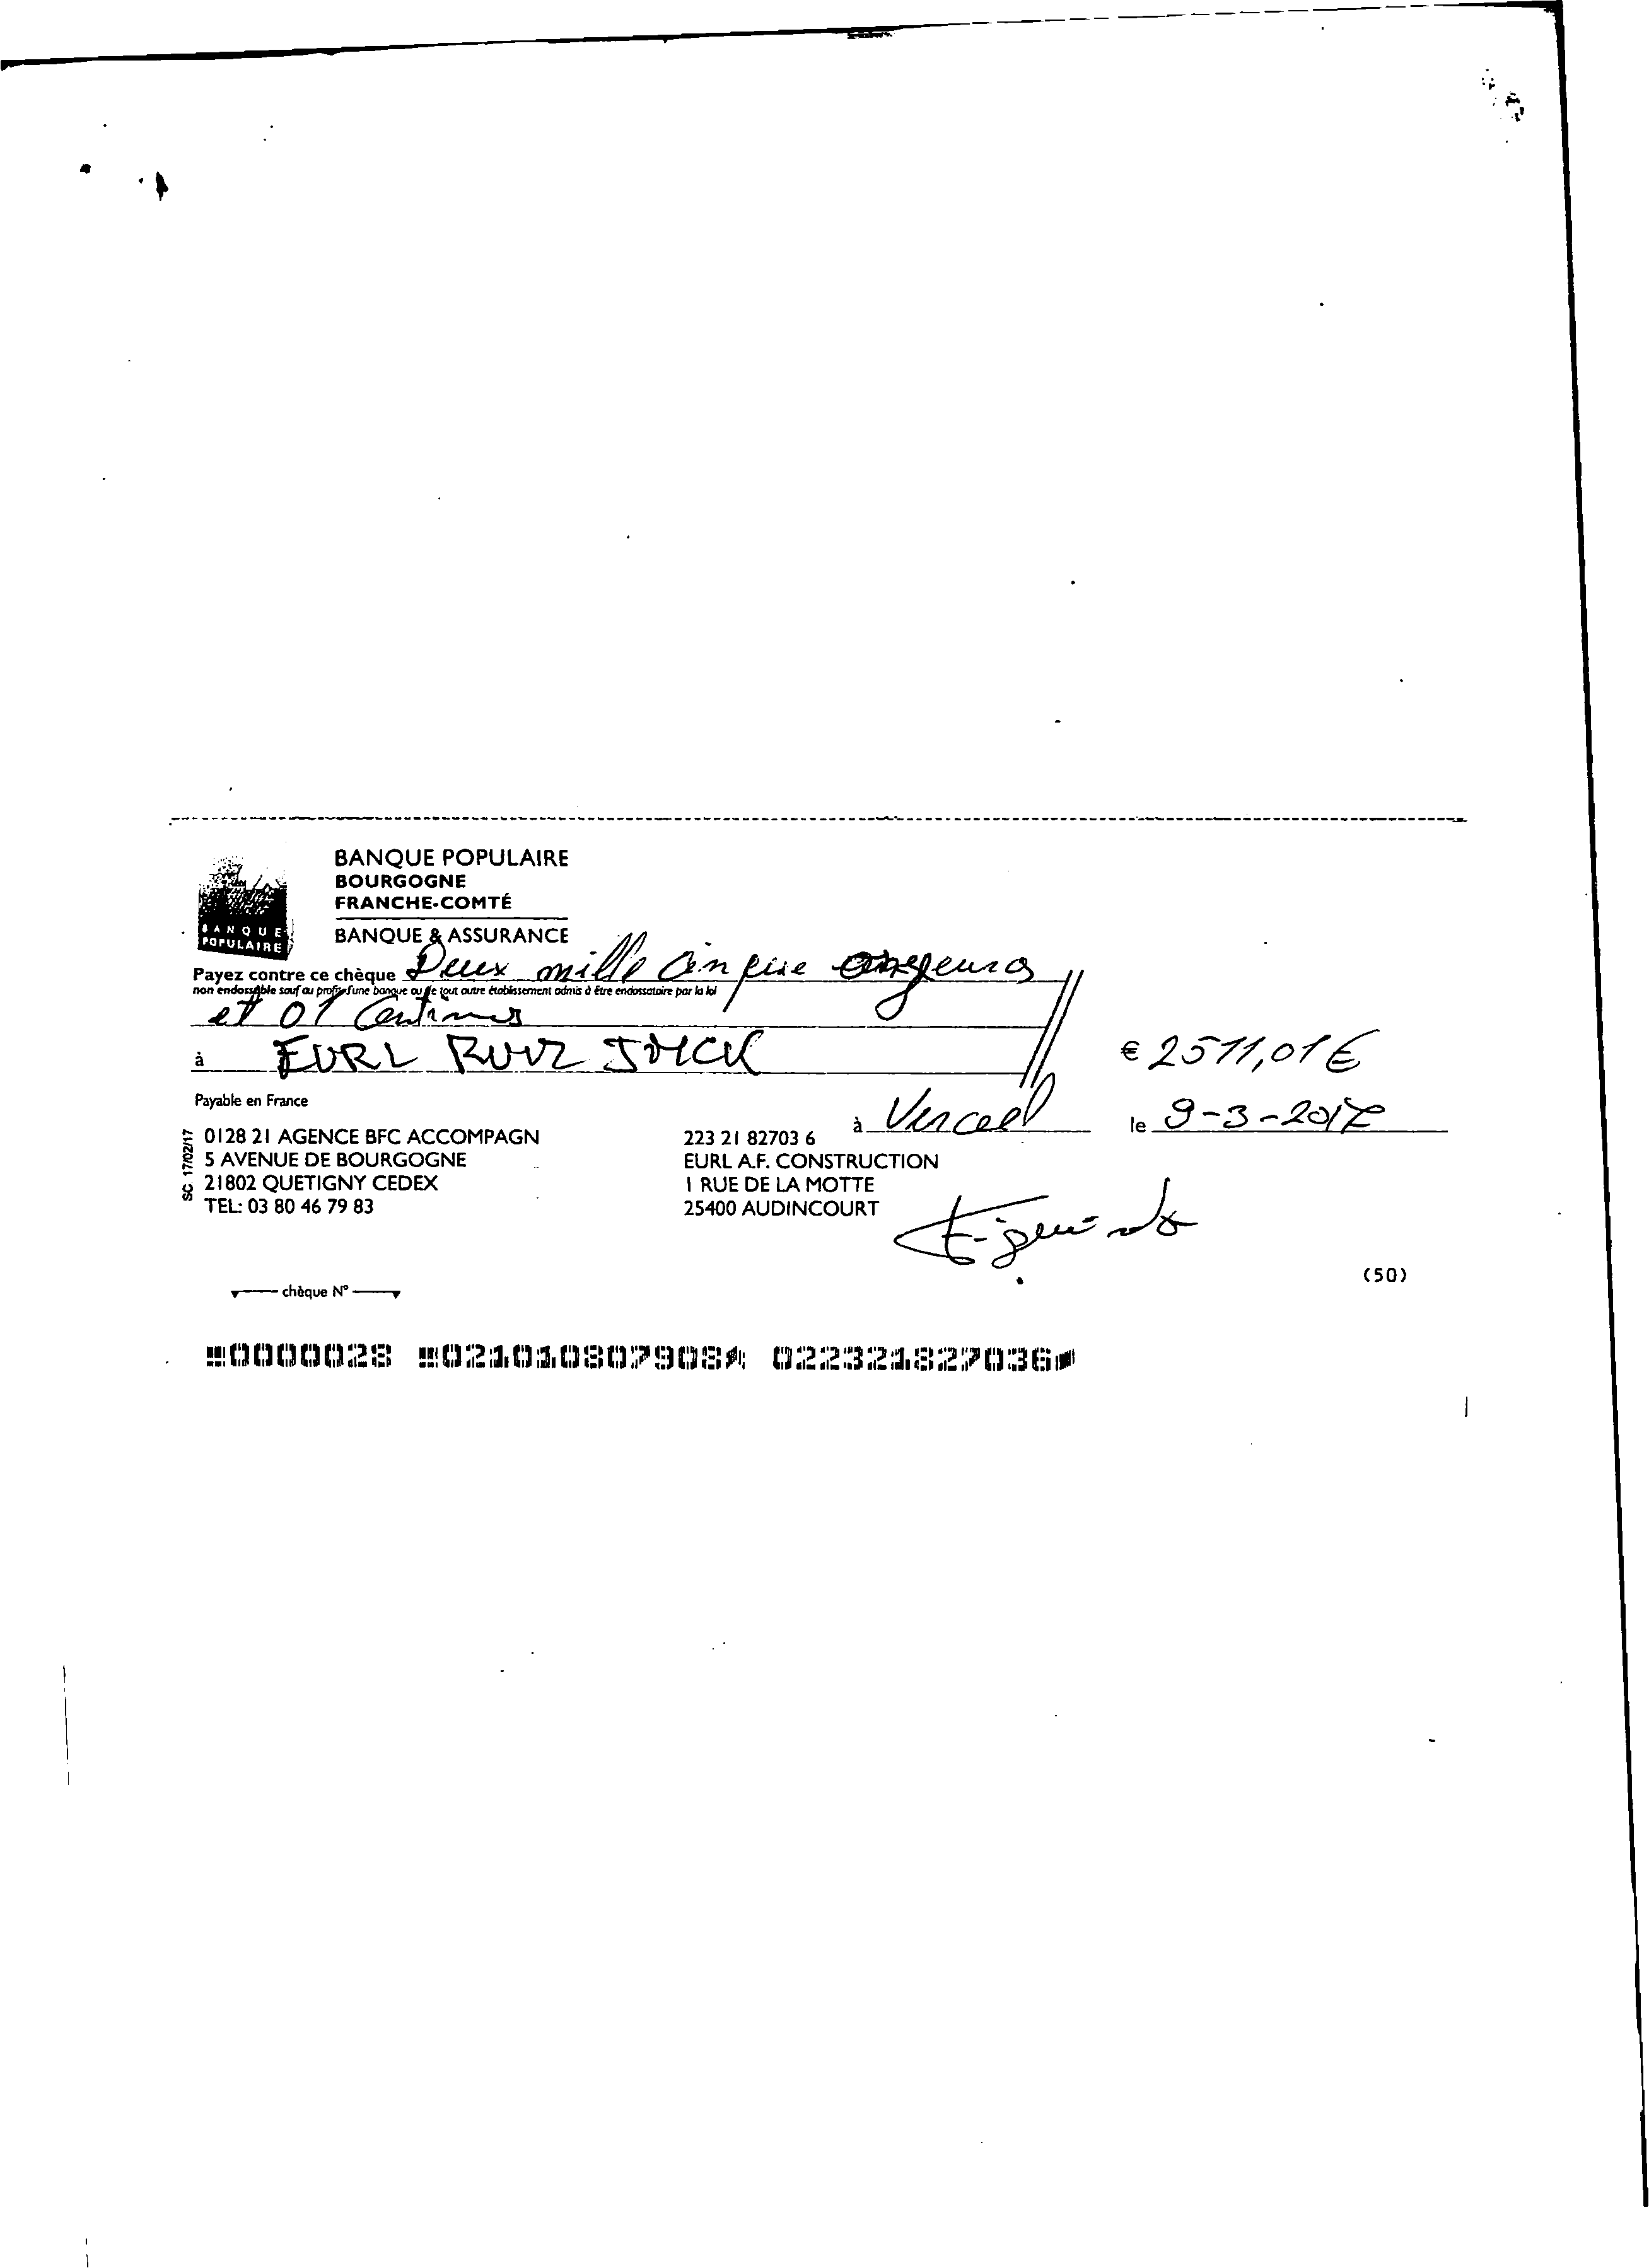 BANQUE POPULAIRE
BOURGOGNE
FRANCHE-COMTÉ
BANQUE & ASSURANCE
BANQUE
POPULAIRE
Payez contre ce chèque Deux mille Cinque euros
non endossable sauf au profit d'une banque ou de tout autre établissement admis à être endossataire par la loi
et 01 Centimes
à EURL RUIZ
€ 2511,01€
Payable en France
à Vercel le 9-3-2017
SC 17/02/17
0128 21 AGENCE BFC ACCOMPAGN
5 AVENUE DE BOURGOGNE
21802 QUETIGNY CEDEX
TEL: 03 80 46 79 83
223 21 82703 6
EURL A.F. CONSTRUCTION
1 RUE DE LA MOTTE
25400 AUDINCOURT
(50)
chèque N°
0000028 021010807908 022321827036